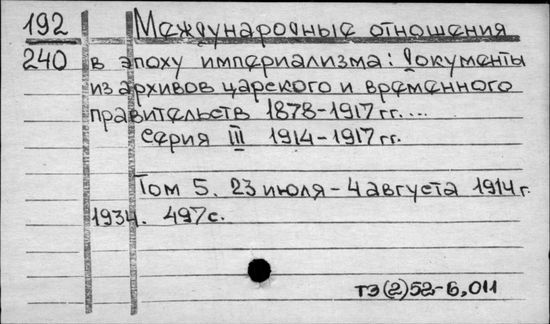 192 Международные отношения
240 в эпоху империализма: Документы
из архивов царского и временного
правительств 1878-1917 гг....
Серия III 1914-1917 гг.
Том 5. 23 июля - 4 августа 1914 г.
1934. 497 с.
ТЭ(2)52-6,011